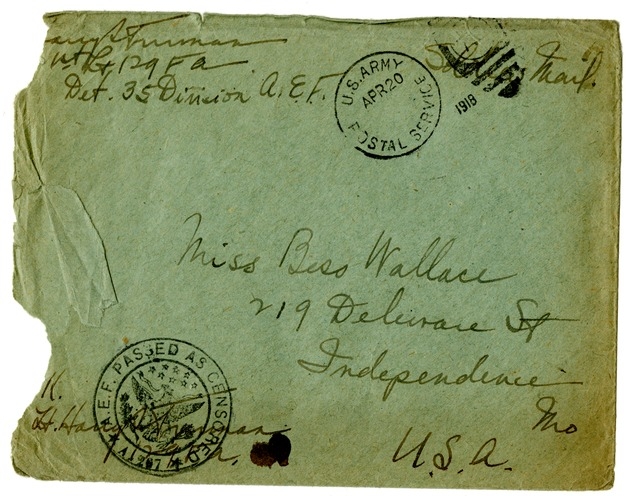 Harry S Truman
129 F A
Det. 35 Division A.E.F.
Soldier's Mail.
U.S. ARMY
APR 20
POSTAL SERVICE
1918
Miss Bess Wallace
219 Delaware St
Independence
Mo
U.S.A.
A.E.F. PASSED AS CENSORED
Lt. Harry S Truman